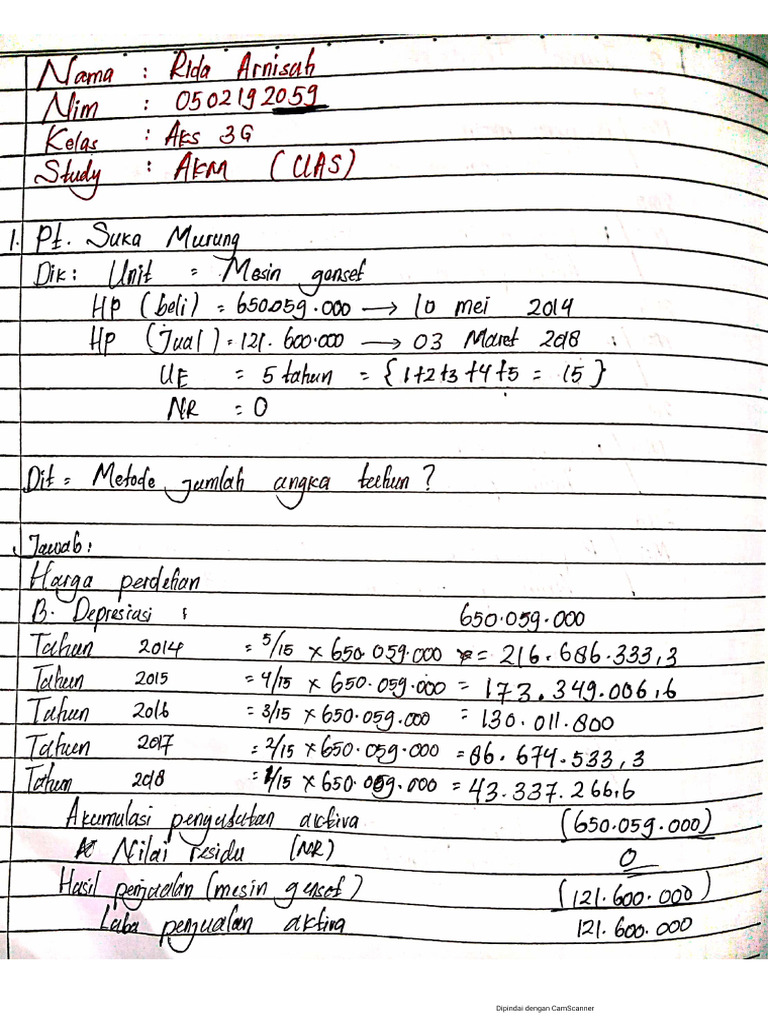 Nama : Rida Arnisah
Nim : 0502192059
Kelas : Aks 3G
Study : AKM (UAS)
1. Pt. Suka Murung
Dik : Unit = Mesin genset
HP (beli) = 650.059.000 → 10 mei 2014
HP (Jual) = 121.600.000 → 03 Maret 2018
UE = 5 tahun = {1+2+3+4+5 = 15}
NR = 0
Dit = Metode jumlah angka tahun?
Jawab :
Harga perolehan
B. Depresiasi : 650.059.000
Tahun 2014 = 5/15 × 650.059.000 = 216.686.333,3
Tahun 2015 = 4/15 × 650.059.000 = 173.349.006,6
Tahun 2016 = 3/15 × 650.059.000 = 130.011.800
Tahun 2017 = 2/15 × 650.059.000 = 86.674.533,3
Tahun 2018 = 1/15 × 650.059.000 = 43.337.266,6
Akumulasi penyusutan aktiva (650.059.000)
Nilai residu (NR) 0
Hasil penjualan (mesin genset) (121.600.000)
Laba penjualan aktiva 121.600.000
Dipindai dengan CamScanner